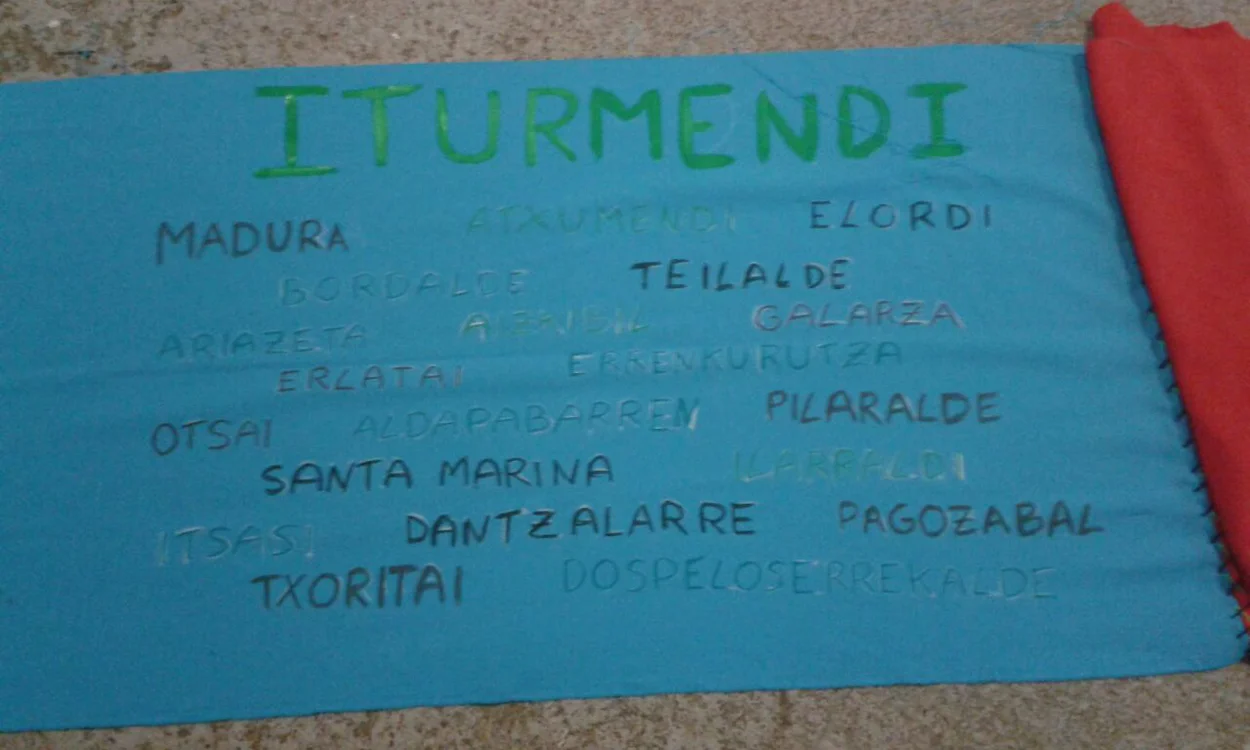 ITURMENDI
MADURA ATXUMENDI ELORDI
BORDALDE TEILALDE
ARIAZETA AIZKIBIL GALARZA
ERLATAI ERRENKURUTZA
OTSAI ALDAPABARREN PILARALDE
SANTA MARINA ILARRALDI
ITSASI DANTZALARRE PAGOZABAL
TXORITAI DOSPELOSERREKALDE